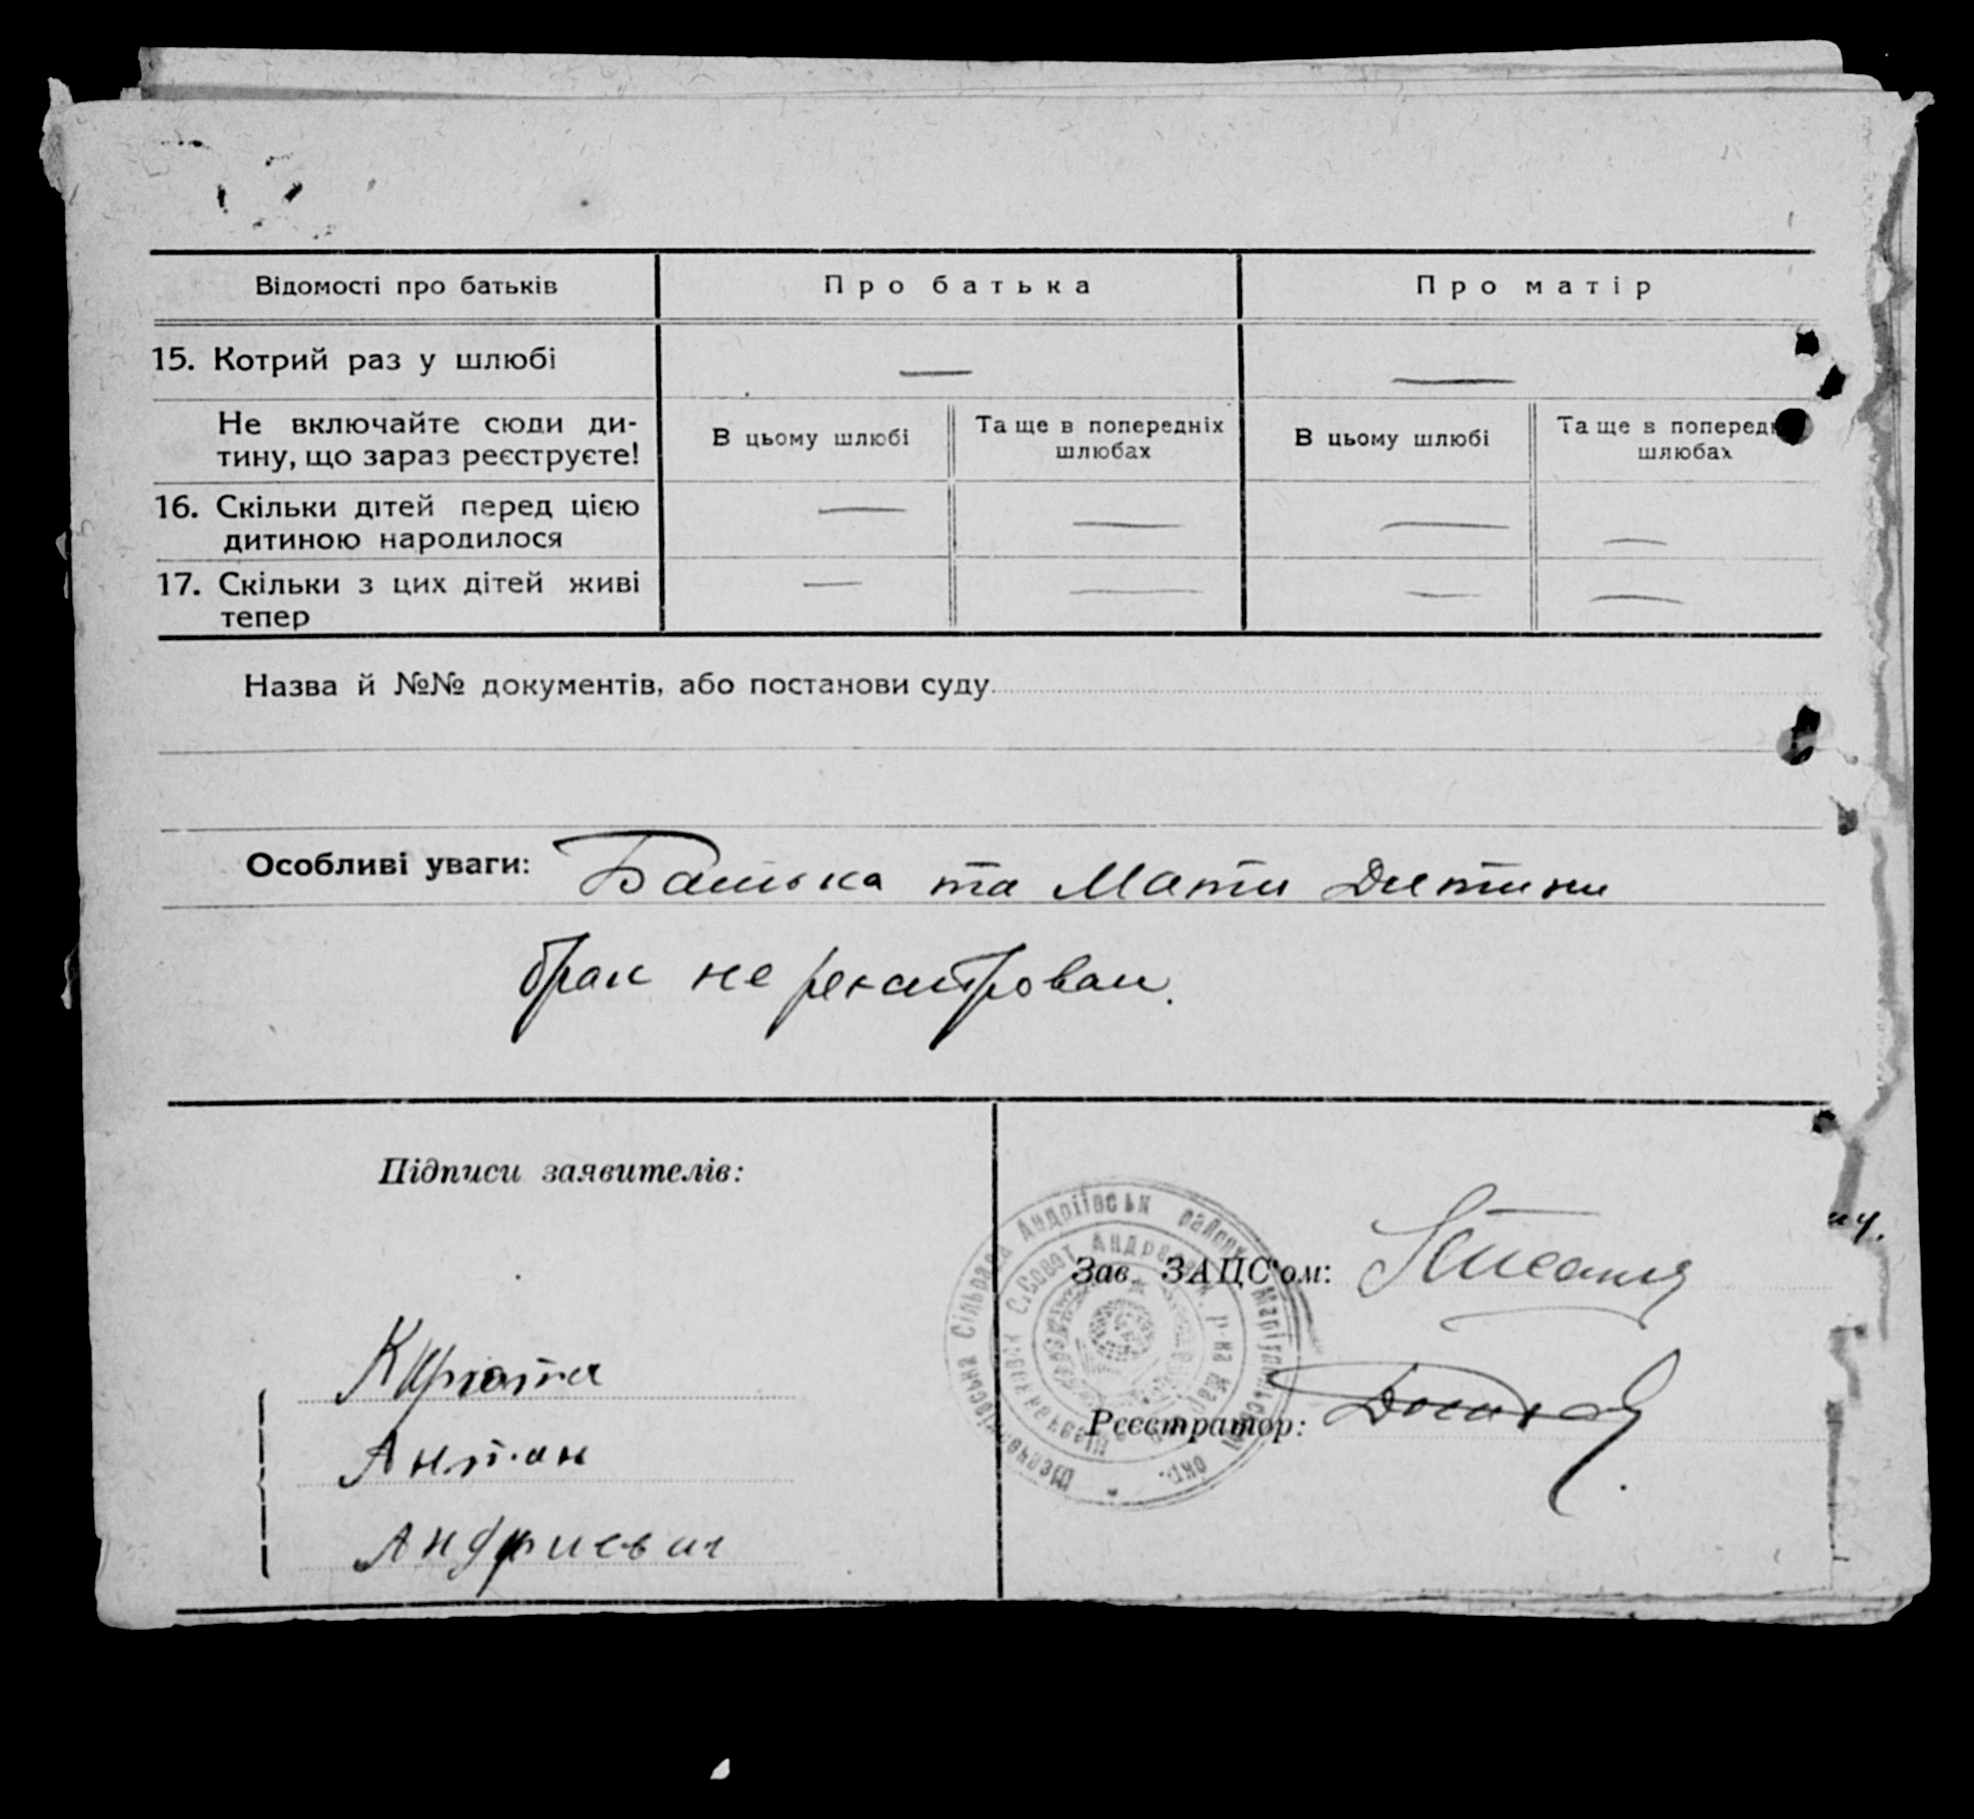 Відомості про батьків
Про батька
Про матір
15. Котрий раз у шлюбі
—
—
Не включайте сюди ди-
тину, що зараз реєструєте!
В цьому шлюбі
Та ще в попередніх
шлюбах
В цьому шлюбі
Та ще в попередн
шлюбах
16. Скільки дітей перед цією
дитиною народилося
—
—
—
—
17. Скільки з цих дітей живі
тепер
—
—
—
—
Назва й №№ документів, або постанови суду
Особливі уваги: Батька та Мати Дитини
брак не
Підписи заявителів:
Антон
Андриевич
Зав. ЗАЦС'ом:
Реєстратор:
Сільрада Андріївськ району Маріупільської окр.
С.Совет Андреев. р-на Мар